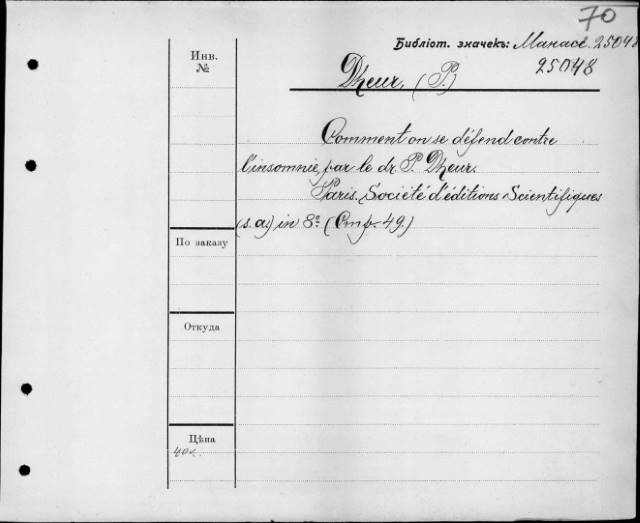 70
Библіот. значекъ: Манасе. 25048
25048
Инв.
№
Dheur, (P.)
Comment on se défend contre
l'insomnie, par le dr. P. Dheur.
Paris. Société d'éditions Scientifiques
(s. a.) in 8º. (Стр. 49.)
По заказу
Откуда
Цѣна
40к.